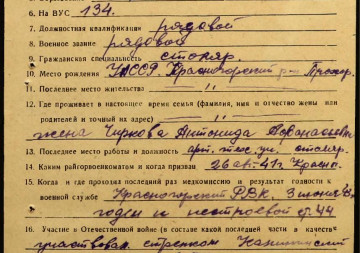 6. На ВУС 134.
7. Должностная квалификация рядовой
8. Военное звание рядовой
9. Гражданская специальность столяр.
10. Место рождения УАССР Красногорский р-н
11. Последнее место жительства — " —
12. Где проживает в настоящее время семья (фамилия, имя и отчество жены или
родителей и точный на адрес)
жена Чиркова Антонида Афанасьевна
13. Последнее место работы и должность столяр.
14. Каким райгорвоенкоматом и когда призван 26 ав-41 г.
15. Когда и где проходил последний раз медкомиссию и результат годности к
военной службе Красногорский РВК. 3 июня
годен к нестроевой ст. 44
16. Участие в Отечественной войне (в составе какой последней части в качеств
участвовал стрелком